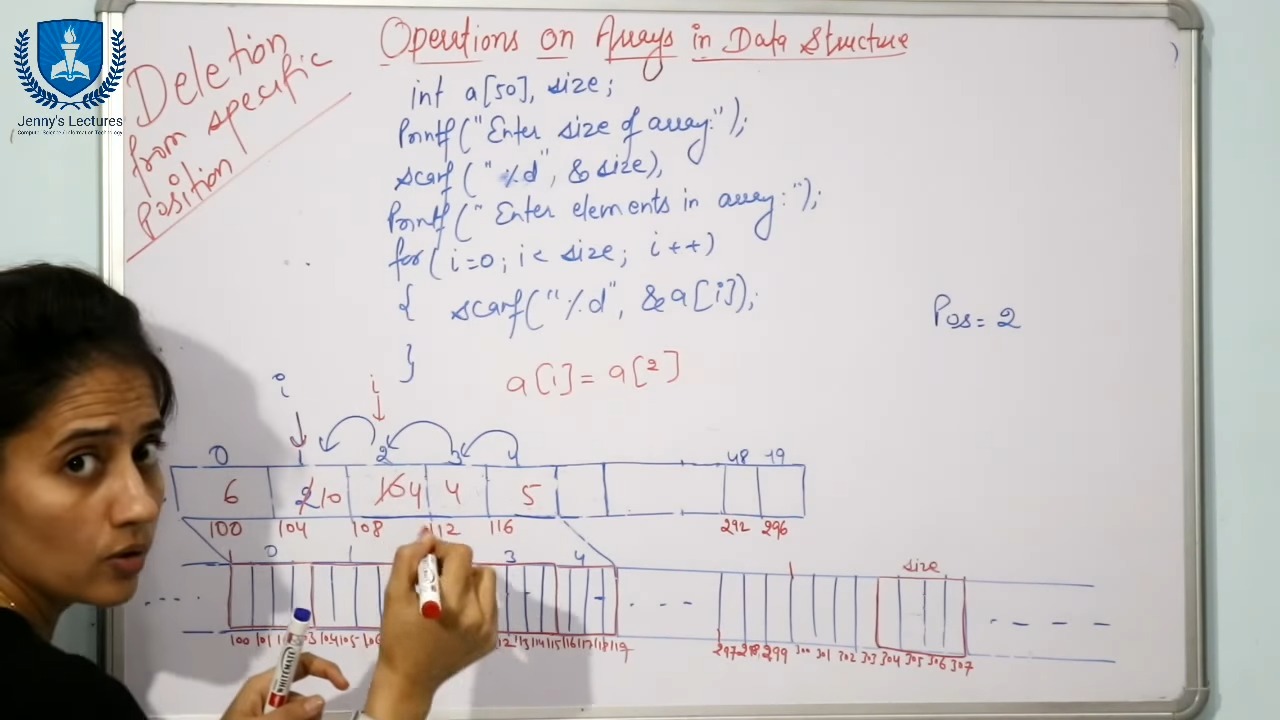 Jenny's Lectures
Computer Science / Information Technology
Deletion
from specific
position
Operations on Arrays in Data Structure
int a[50], size;
Printf("Enter size of array:");
scanf("%d", &size),
Printf("Enter elements in array:");
for(i=0; i< size; i++)
{ scanf("%d", &a[i]);
}
Pos= 2
a[i] = a[2]
i i
0 1 2 3 4 48 49
6 2 10 10 4 4 5
100 104 108 112 116 292 296
0 1 3 4 size
100 101 103 104 105 112 113 114 115 116 117 118 119 297 298 299 300 301 302 303 304 305 306 307
WHITEMATE